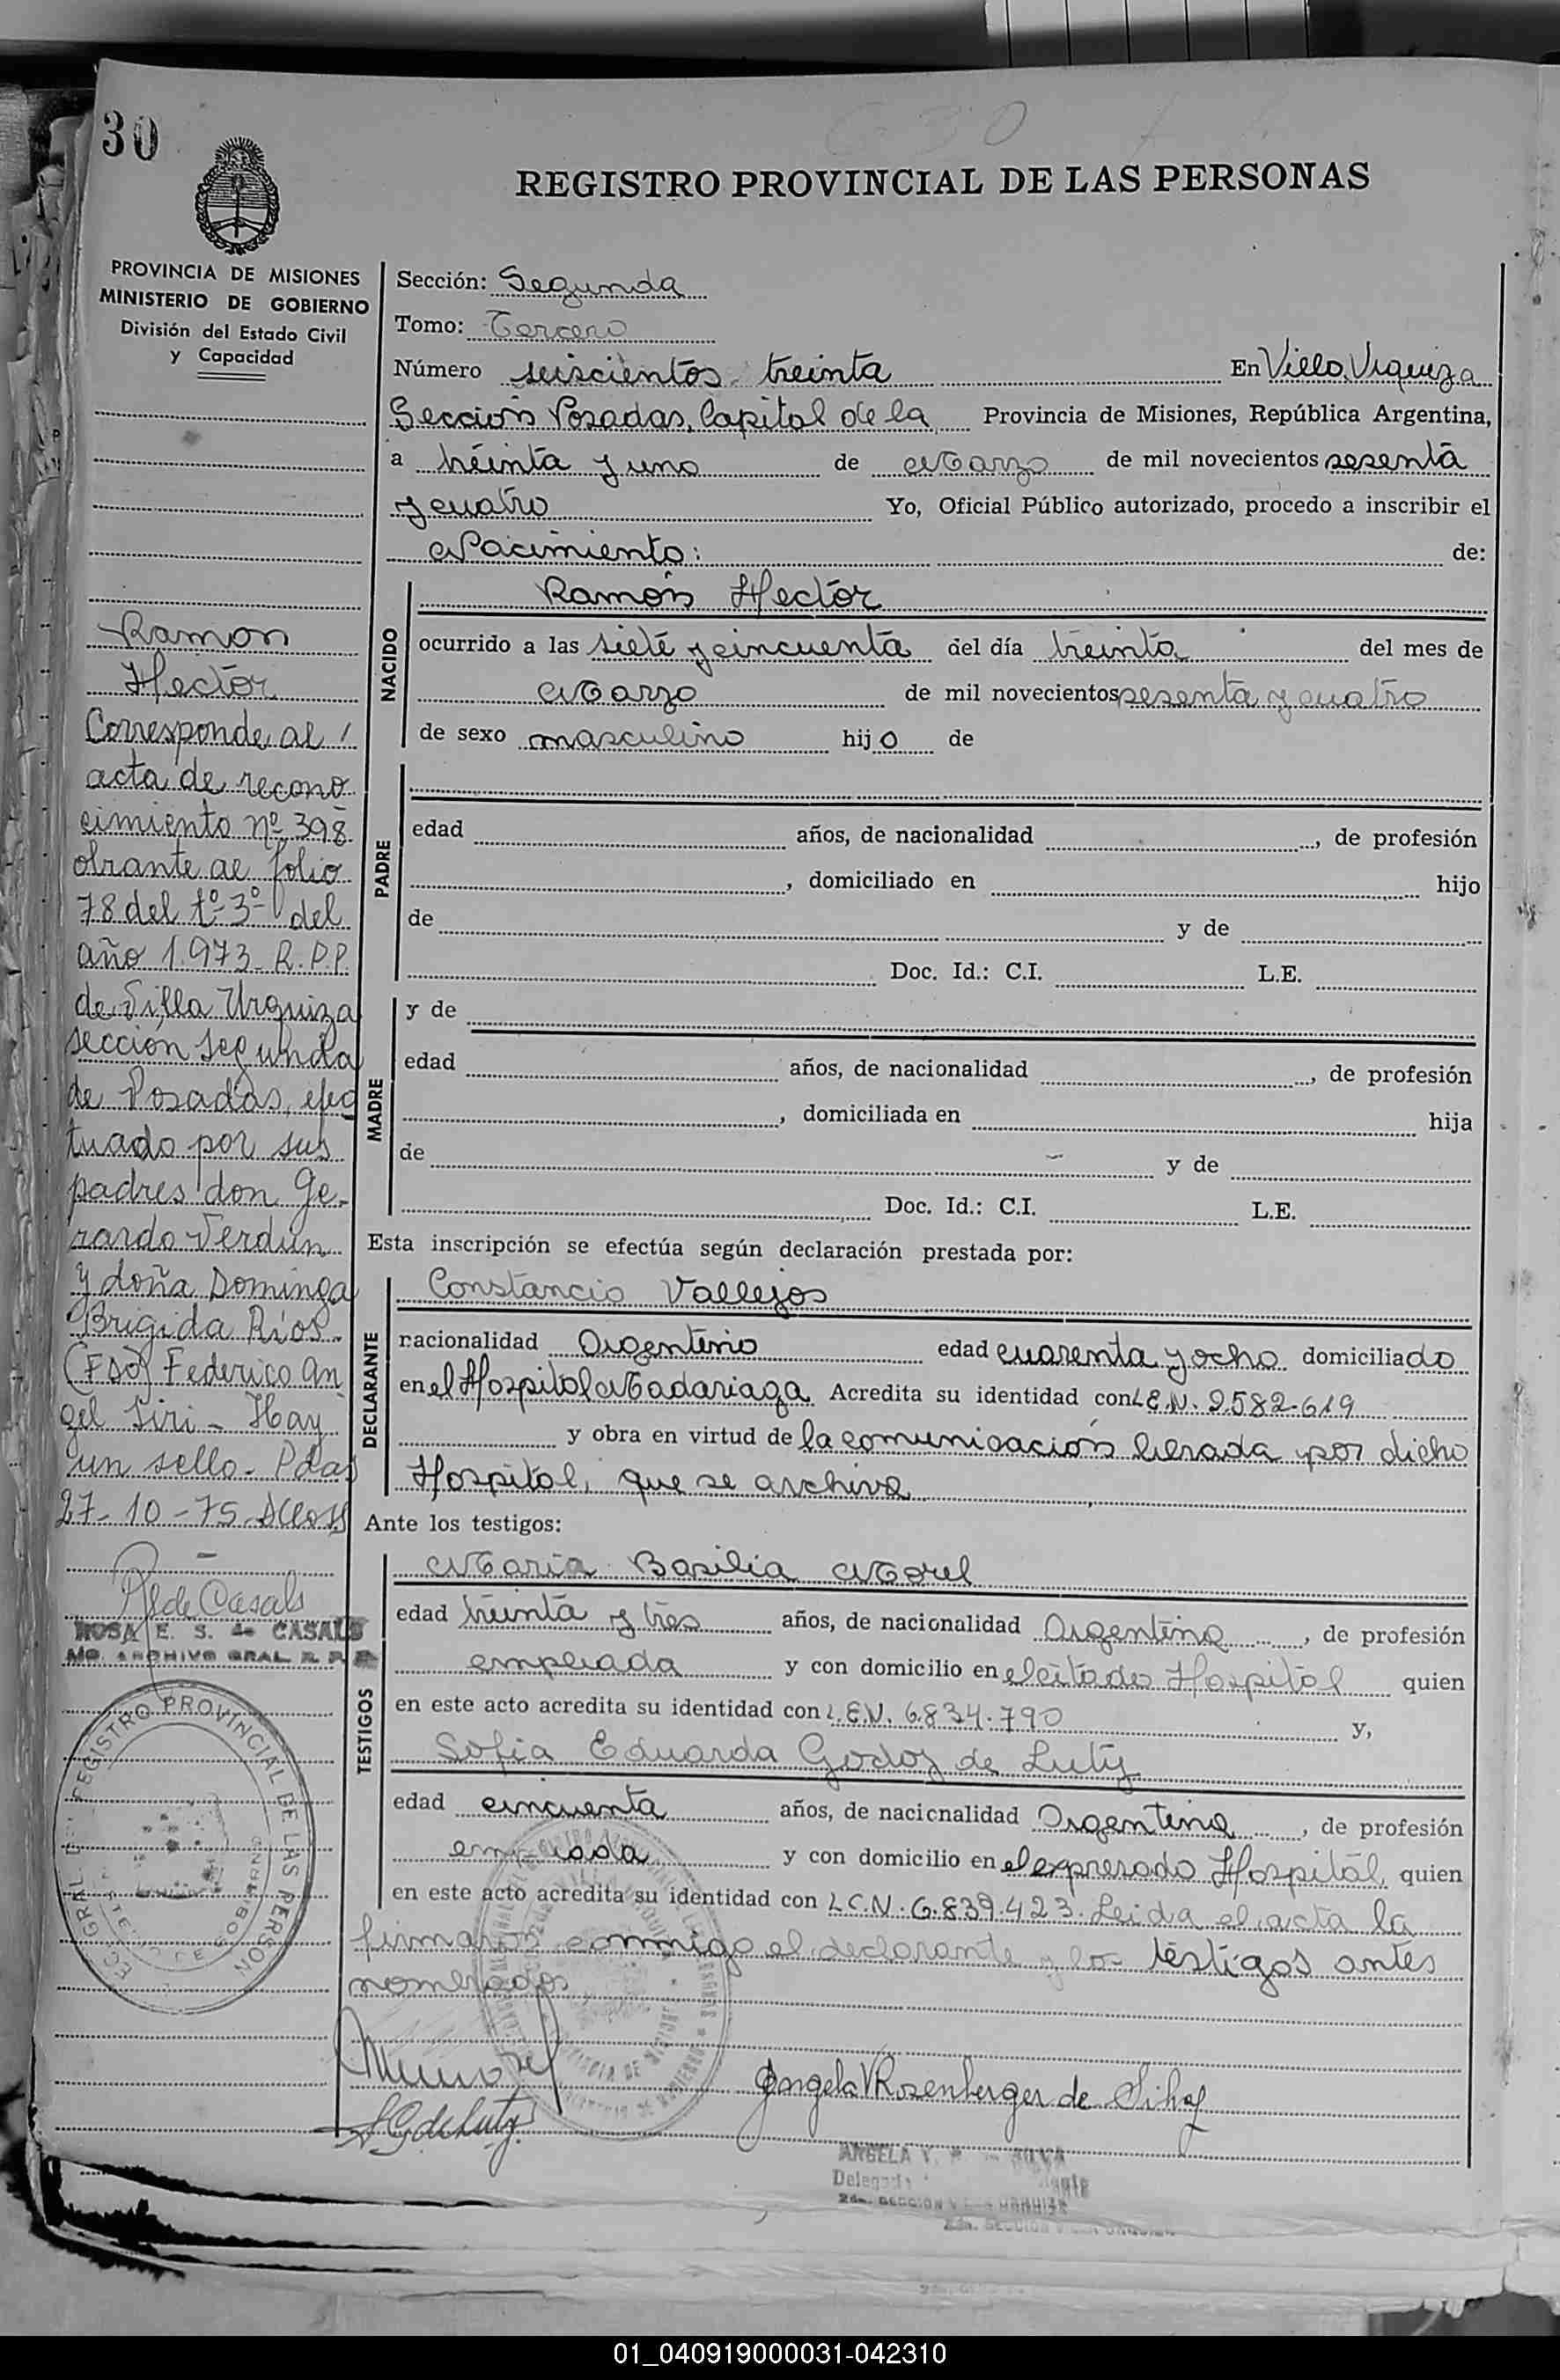 30
REGISTRO PROVINCIAL DE LAS PERSONAS
PROVINCIA DE MISIONES
MINISTERIO DE GOBIERNO
División del Estado Civil
y Capacidad
Sección: Segunda
Tomo: Tercero
Número seiscientos treinta En Villa Urquiza
Sección Posadas, Capital de la Provincia de Misiones, República Argentina,
a treinta y uno de Marzo de mil novecientos sesenta
y cuatro Yo, Oficial Público autorizado, procedo a inscribir el
Nacimiento: de:
NACIDO
Ramón Hector
ocurrido a las siete y cincuenta del día treinta del mes de
Marzo de mil novecientos sesenta y cuatro
de sexo masculino hijo de
PADRE
edad años, de nacionalidad , de profesión
, domiciliado en hijo
de y de
Doc. Id.: C.I. L.E.
MADRE
y de
edad años, de nacionalidad , de profesión
, domiciliada en hija
de y de
Doc. Id.: C.I. L.E.
Esta inscripción se efectúa según declaración prestada por:
DECLARANTE
Constancio Vallejos
nacionalidad Argentino edad cuarenta y ocho domiciliado
en el Hospital Madariaga Acredita su identidad con L.E.N. 2.582.619
y obra en virtud de la comunicación librada por dicho
Hospital, que se archiva
Ante los testigos:
TESTIGOS
Maria Basilia Morel
edad treinta y tres años, de nacionalidad Argentina , de profesión
empleada y con domicilio en el citado Hospital quien
en este acto acredita su identidad con L.E.N. 6.834.790 y,
Sofia Eduarda Godoy de Luty
edad cincuenta años, de nacionalidad Argentina , de profesión
empleada y con domicilio en el expresado Hospital, quien
en este acto acredita su identidad con L.C.N. 6.839.423. Leida el acta la
firmaron conmigo el declarante y los testigos antes
nombrados
SG de Luty
Angela V Rosenberger de Silva
ANGELA V. SILVA
Delegada
2da. SECCION VILLA URQUIZA
Ramon
Hector
Corresponde al
acta de recono
cimiento nº 398
obrante al folio
78 del tº 3º del
año 1.973 R.P.P.
de Villa Urquiza
sección segunda
de Posadas, efec
tuado por sus
padres don Ge-
rardo Verdún
y doña Dominga
Brigida Ríos.
(FDO) Federico An
gel Siri - Hay
un sello. Pdas
27-10-75.
R S de Casals
ROSA E. S. de CASALS
ARCHIVO GRAL. R. P. P.
REGISTRO PROVINCIAL DE LAS PERSON
01_040919000031-042310